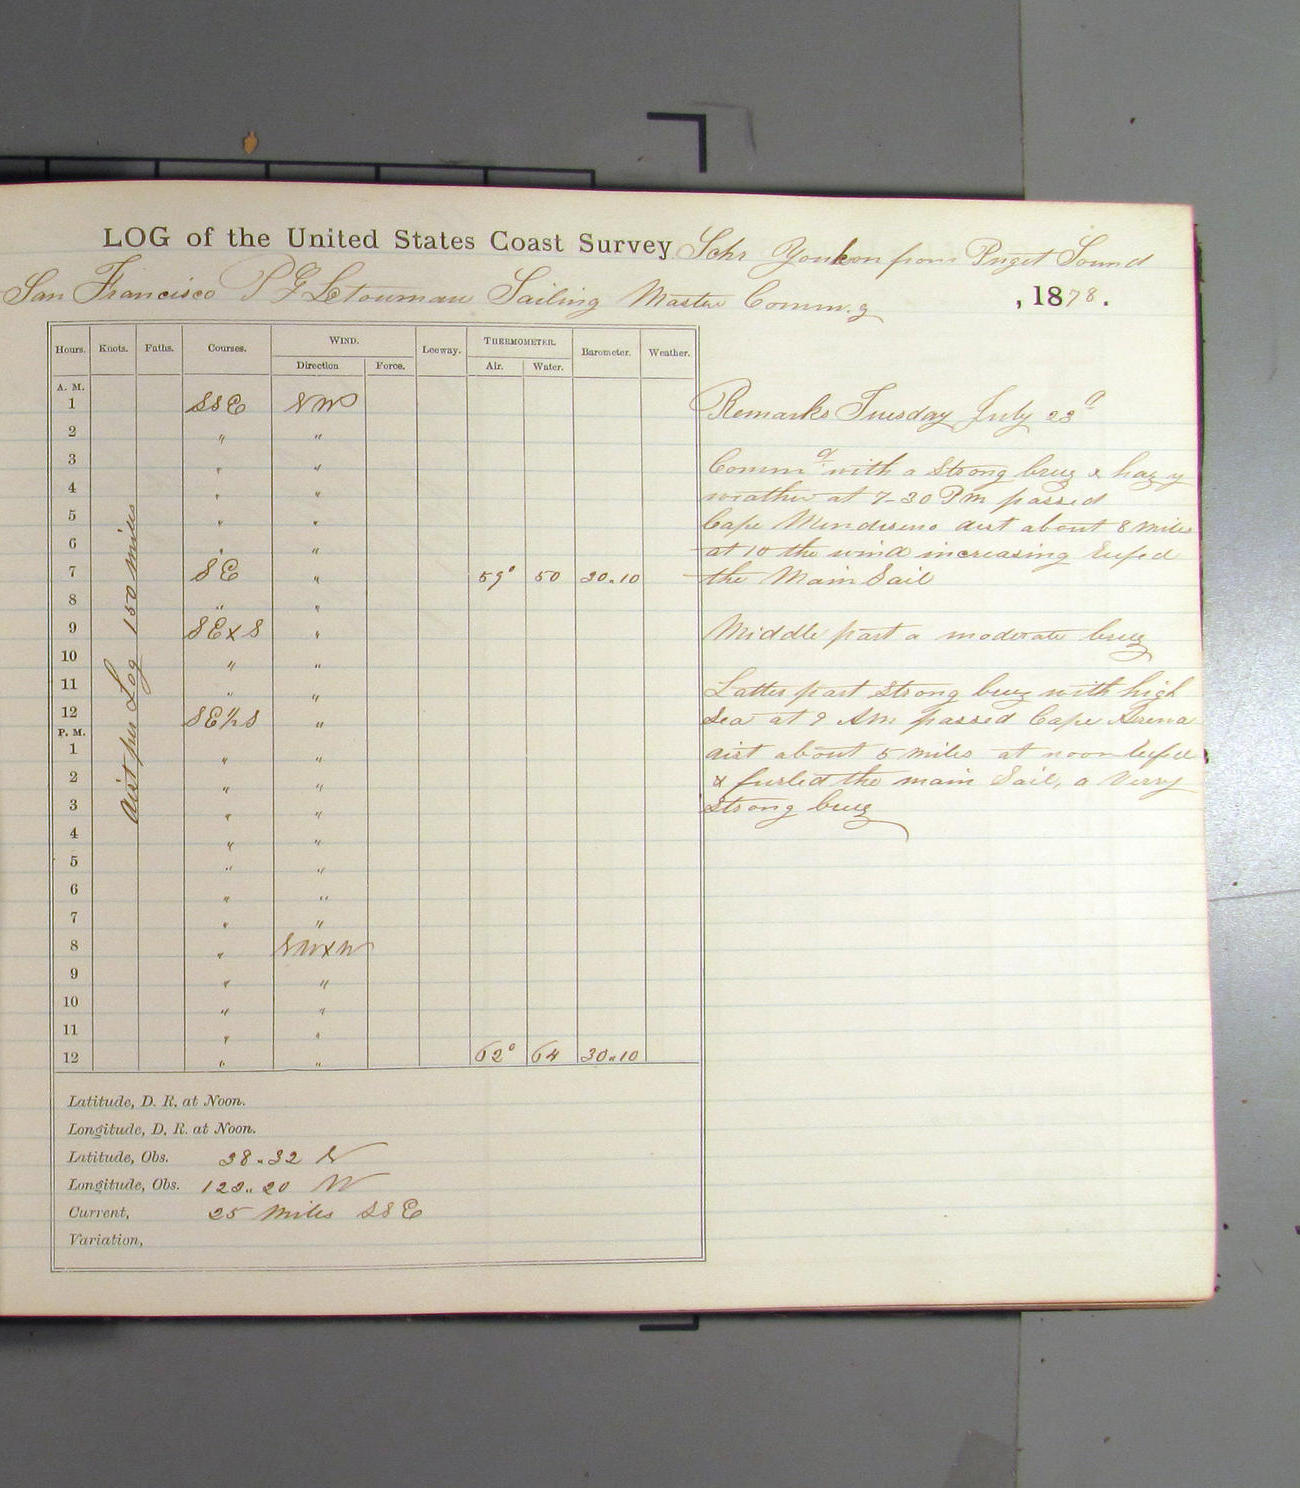 LOG of the United States Coast Survey Schr Youkon from Puget Sound
San Francisco P F Letournau Sailing Master Comm.g , 1878.
Hours. Knots. Faths. Courses. WIND. Leeway. THERMOMETER. Barometer. Weather.
Direction Force. Air. Water.
A. M.
1 SSE NW
2 " "
3 " "
4 " "
5 " "
6 " "
7 SE " 59° 50 30.10
8 " "
9 SExS "
10 " "
11 " "
12 SE½S "
P. M.
1 " "
2 " "
3 " "
4 " "
5 " "
6 " "
7 " "
8 " NWxW
9 " "
10 " "
11 " "
12 " " 62° 64 30.10
dist per Log 150 miles
Latitude, D. R. at Noon.
Longitude, D. R. at Noon.
Latitude, Obs. 38.32 N
Longitude, Obs. 123.. 20 W
Current, 25 Miles SSE
Variation,
Remarks Tuesday July 23d
Commd with a Strong breez & hazy
weather at 7-30 PM passed
Cape Mendiseno dist about 8 miles
at 10 the wind increasing
the Main Sail
Middle part a moderate breez
Latter part strong breez with high
Sea at 9 AM passed Cape Arena
dist about 5 miles at noon
& furled the main Sail, a Verry
Strong breez